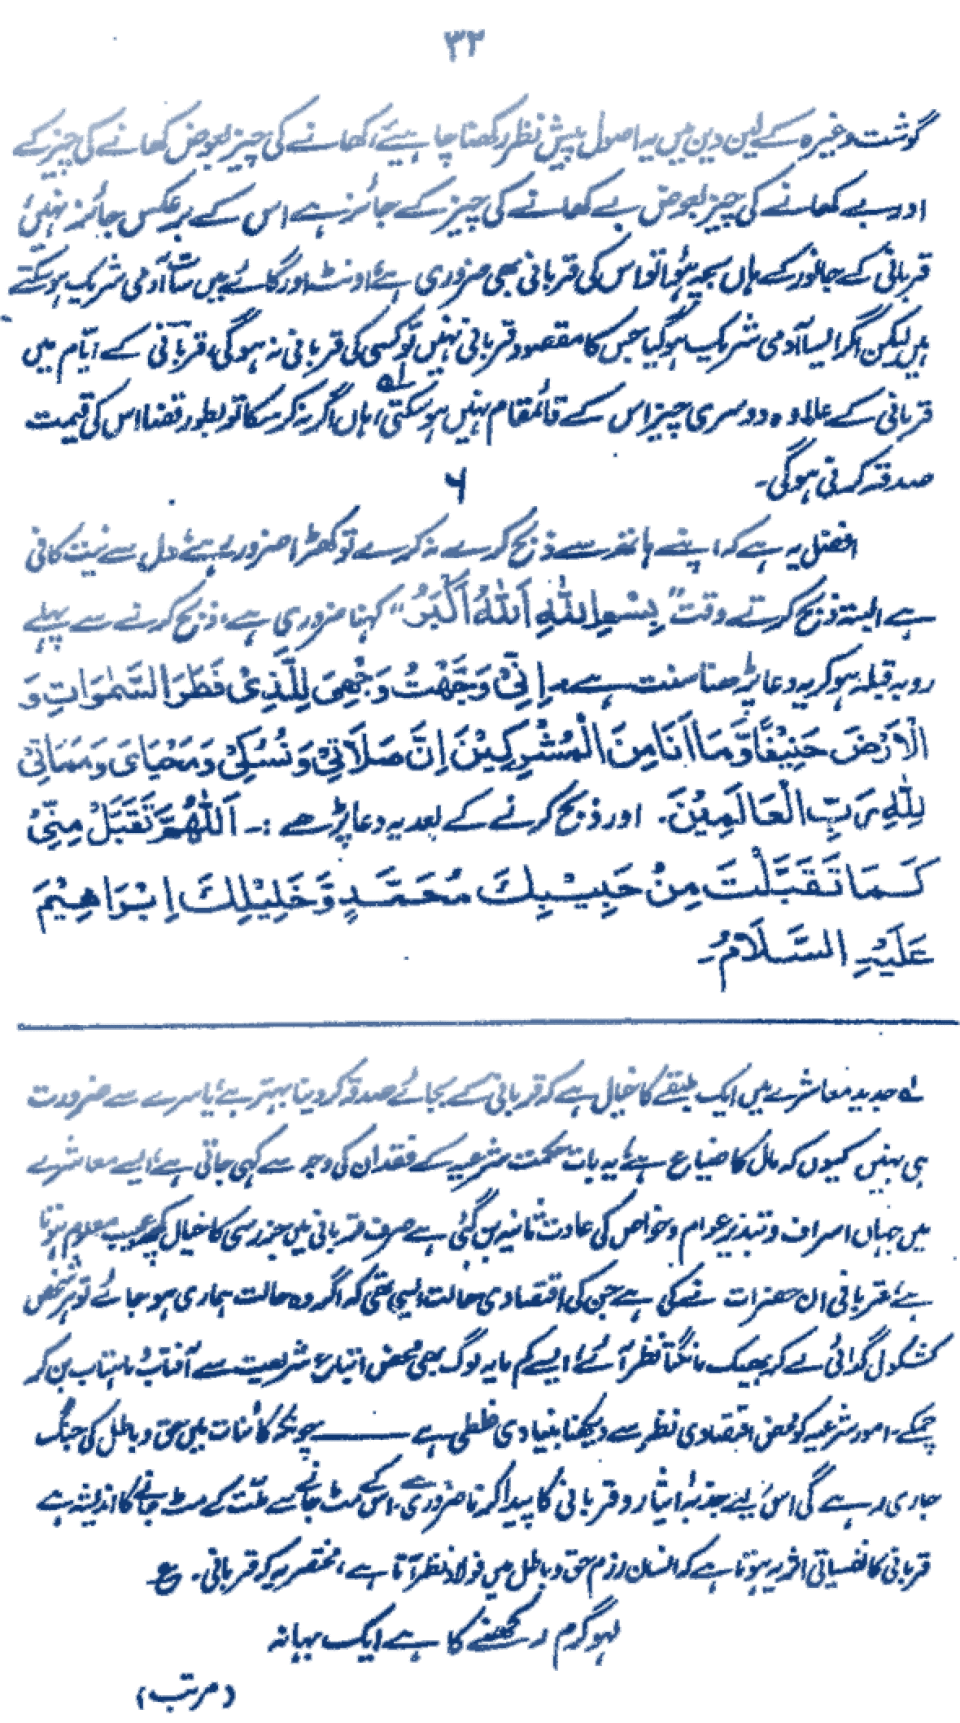 ۳۲
گوشت وغیرہ کے لین دین میں یہ اصول پیش نظر رکھنا چاہیئے، کھانے کی چیز بعوض کھانے کی چیز کے
اور بے کھانے کی چیز بعوض بے کھانے کی چیز کے جائز ہے اس کے برعکس جائز نہیں،
قربانی کے جانور کے ہاں بچہ ہوا تو اس کی قربانی بھی ضروری ہے، اونٹ اور گائے میں سات آدمی شریک ہو سکتے
ہیں لیکن اگر ایسا آدمی شریک ہو گیا جس کا مقصود قربانی نہیں تو کسی کی قربانی نہ ہوگی، قربانی کے ایّام میں
قربانی کے علاوہ دوسری چیز اس کے قائمقام نہیں ہو سکتی، ہاں اگر نہ کر سکا تو بطور قضا اس کی قیمت
صدقہ کرنی ہوگی۔
۶
افضل یہ ہے کہ اپنے ہاتھ سے ذبح کرے نہ کرے تو کھڑا ضرور رہے، دل سے نیت کافی
ہے البتہ ذبح کرتے وقت "بِسْمِ اللّٰهِ اَللّٰهُ اَكْبَرُ" کہنا ضروری ہے، ذبح کرنے سے پہلے
رو بہ قبلہ ہو کر یہ دعا پڑھنا سنت ہے۔ اِنِّيْ وَجَّهْتُ وَجْهِيَ لِلَّذِيْ فَطَرَ السَّمٰوَاتِ وَ
الْاَرْضَ حَنِيْفًا وَّمَا اَنَا مِنَ الْمُشْرِكِيْنَ اِنَّ صَلَاتِيْ وَنُسُكِيْ وَمَحْيَايَ وَمَمَاتِيْ
لِلّٰهِ رَبِّ الْعَالَمِيْنَ۔ اور ذبح کرنے کے بعد یہ دعا پڑھے :۔ اَللّٰهُمَّ تَقَبَّلْ مِنِّيْ
كَمَا تَقَبَّلْتَ مِنْ حَبِيْبِكَ مُحَمَّدٍ وَّخَلِيْلِكَ اِبْرَاهِيْمَ
عَلَيْهِ السَّلَامُ۔
لے جدید معاشرے میں ایک طبقے کا خیال ہے کہ قربانی کے بجائے صدقہ کر دینا بہتر ہے، یا سرے سے ضرورت
ہی نہیں کیوں کہ مال کا ضیاع ہے، یہ بات حکمت شرعیہ کے فقدان کی وجہ سے کہی جاتی ہے، ایسے معاشرے
میں جہاں اسراف و تبذیر عوام و خواص کی عادت ثانیہ بن گئی ہے صرف قربانی میں جزرسی کا خیال کچھ عجیب معلوم ہوتا
ہے، قربانی ان حضرات نے کی ہے جن کی اقتصادی حالت ایسی تھی کہ اگر وہ حالت ہماری ہو جائے تو ہر شخص
کشکول گدائی لے کر بھیک مانگتا نظر آئے، ایسے کم مایہ لوگ بھی محض اتباعِ شریعت سے آفتاب و ماہتاب بن کر
چمکے۔ امور شرعیہ کو محض اقتصادی نظر سے دیکھنا بنیادی غلطی ہے ——— چونکہ کائنات میں حق و باطل کی جنگ
جاری رہے گی اس لیے جذبۂ ایثار و قربانی کا پیدا کرنا ضروری ہے۔ اس کے مٹ جانے سے ملّت کے مٹ جانے کا اندیشہ ہے
قربانی کا نفسیاتی اثر یہ ہوتا ہے کہ انسان رزم حق و باطل میں فولاد نظر آتا ہے، مختصر یہ کہ قربانی۔ ع
لہو گرم رکھنے کا ہے ایک بہانہ
(مرتب)